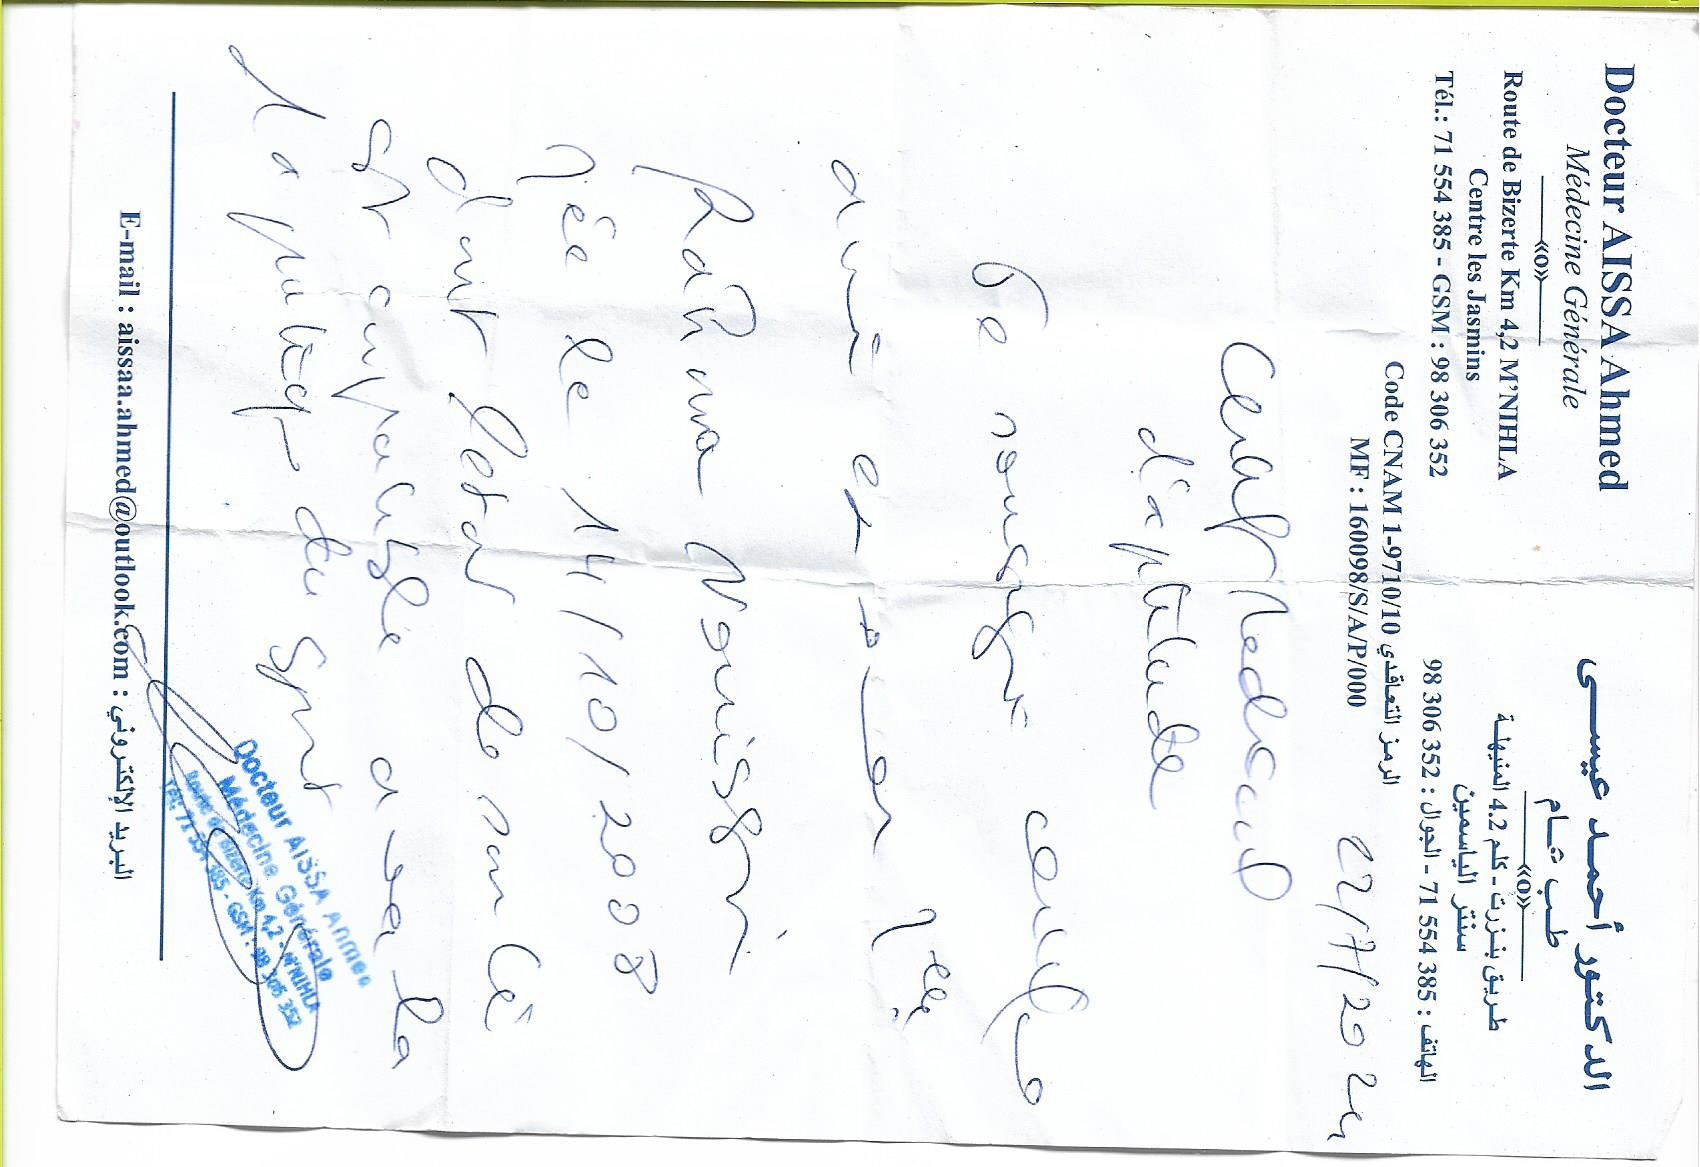 Docteur AISSA Ahmed
Médecine Générale
«o»
Route de Bizerte Km 4,2 M'NIHLA
Centre les Jasmins
Tél.: 71 554 385 - GSM : 98 306 352
الدكتور أحمد عيسى
طب عام
«o»
طريق بنزرت - كلم 4.2 المنيهلة
سنتر الياسمين
الهاتف : 385 554 71 - الجوال : 352 306 98
Code CNAM 1-9710/10 الرمز التعاقدي
MF : 160098/S/A/P/000
22/7/2024
Certif Medical
d'aptitude
Je soussigné certifie
avoir examiné
Rahma
Née le 14/10/2008
dont l'état de santé
est compatible avec la
la pratique du sport
Docteur AISSA Ahmed
Médecine Générale
Route de Bizerte Km 4,2 - M'NIHLA
Tél: 71 554 385 - GSM : 98 306 352
E-mail : aissaa.ahmed@outlook.com : البريد الإلكتروني